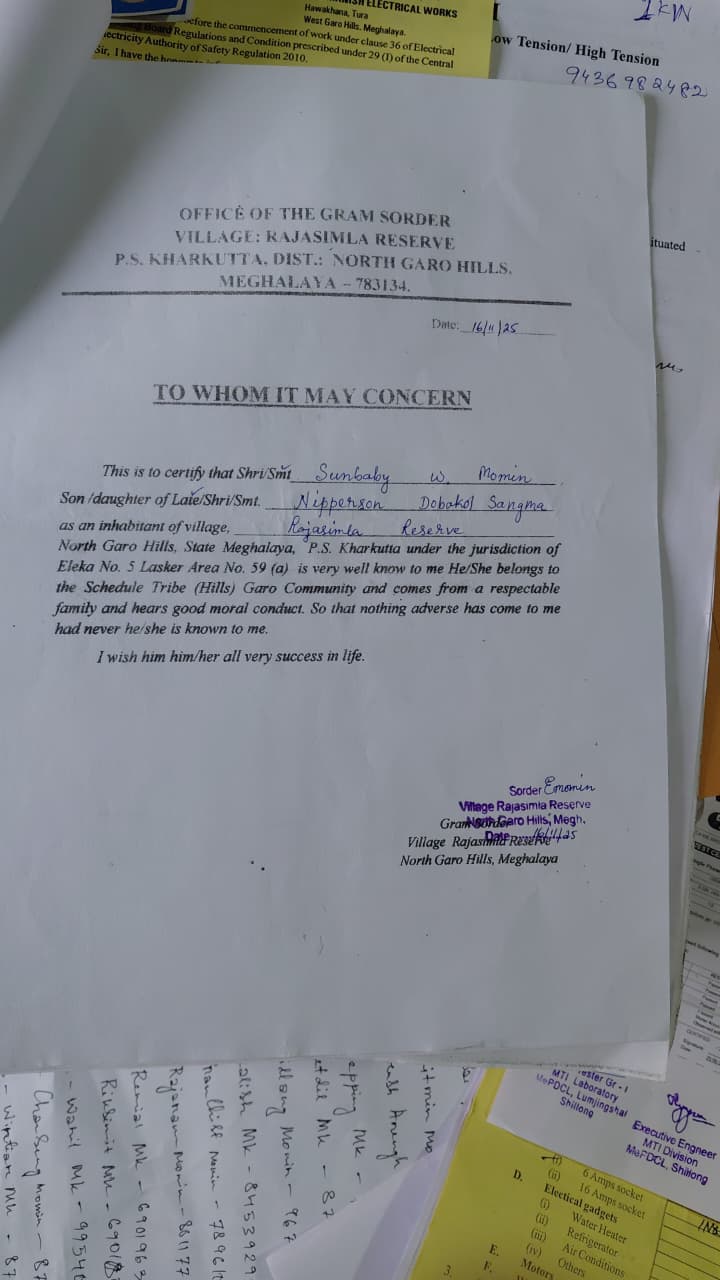 ELECTRICAL WORKS
Hawakhana, Tura
West Garo Hills. Meghalaya.
before the commencement of work under clause 36 of Electrical
Board Regulations and Condition prescribed under 29 (I) of the Central
Electricity Authority of Safety Regulation 2010.
Sir, I have the
1KW
Low Tension/ High Tension
9436982482
ituated
OFFICE OF THE GRAM SORDER
VILLAGE: RAJASIMLA RESERVE
P.S. KHARKUTTA, DIST.: NORTH GARO HILLS,
MEGHALAYA – 783134.
Date: 16/11/25
TO WHOM IT MAY CONCERN
This is to certify that Shri/Smt Sunbaby W. Momin
Son /daughter of Late/Shri/Smt. Nipperson Dobakol Sangma
as an inhabitant of village, Rajasimla Reserve
North Garo Hills, State Meghalaya, P.S. Kharkutta under the jurisdiction of
Eleka No. 5 Lasker Area No. 59 (a) is very well know to me He/She belongs to
the Schedule Tribe (Hills) Garo Community and comes from a respectable
family and hears good moral conduct. So that nothing adverse has come to me
had never he/she is known to me.
I wish him him/her all very success in life.
Sorder Emomin
Village Rajasimla Reserve
North Garo Hills, Megh.
Date 16/11/25
Gram Sorder
Village Rajasimla Reserve
North Garo Hills, Meghalaya
Tester Gr - I
MTI Laboratory
MePDCL, Lumjingshai
Shillong
Executive Engneer
MTI Division
MePDCL, Shillong
(i) 6 Amps socket
(ii) 16 Amps socket
D. Electical gadgets
(i) Water Heater
(ii) Refrigerator
(iii) Air Conditions
(iv) Others
E. Motors
F.
3.